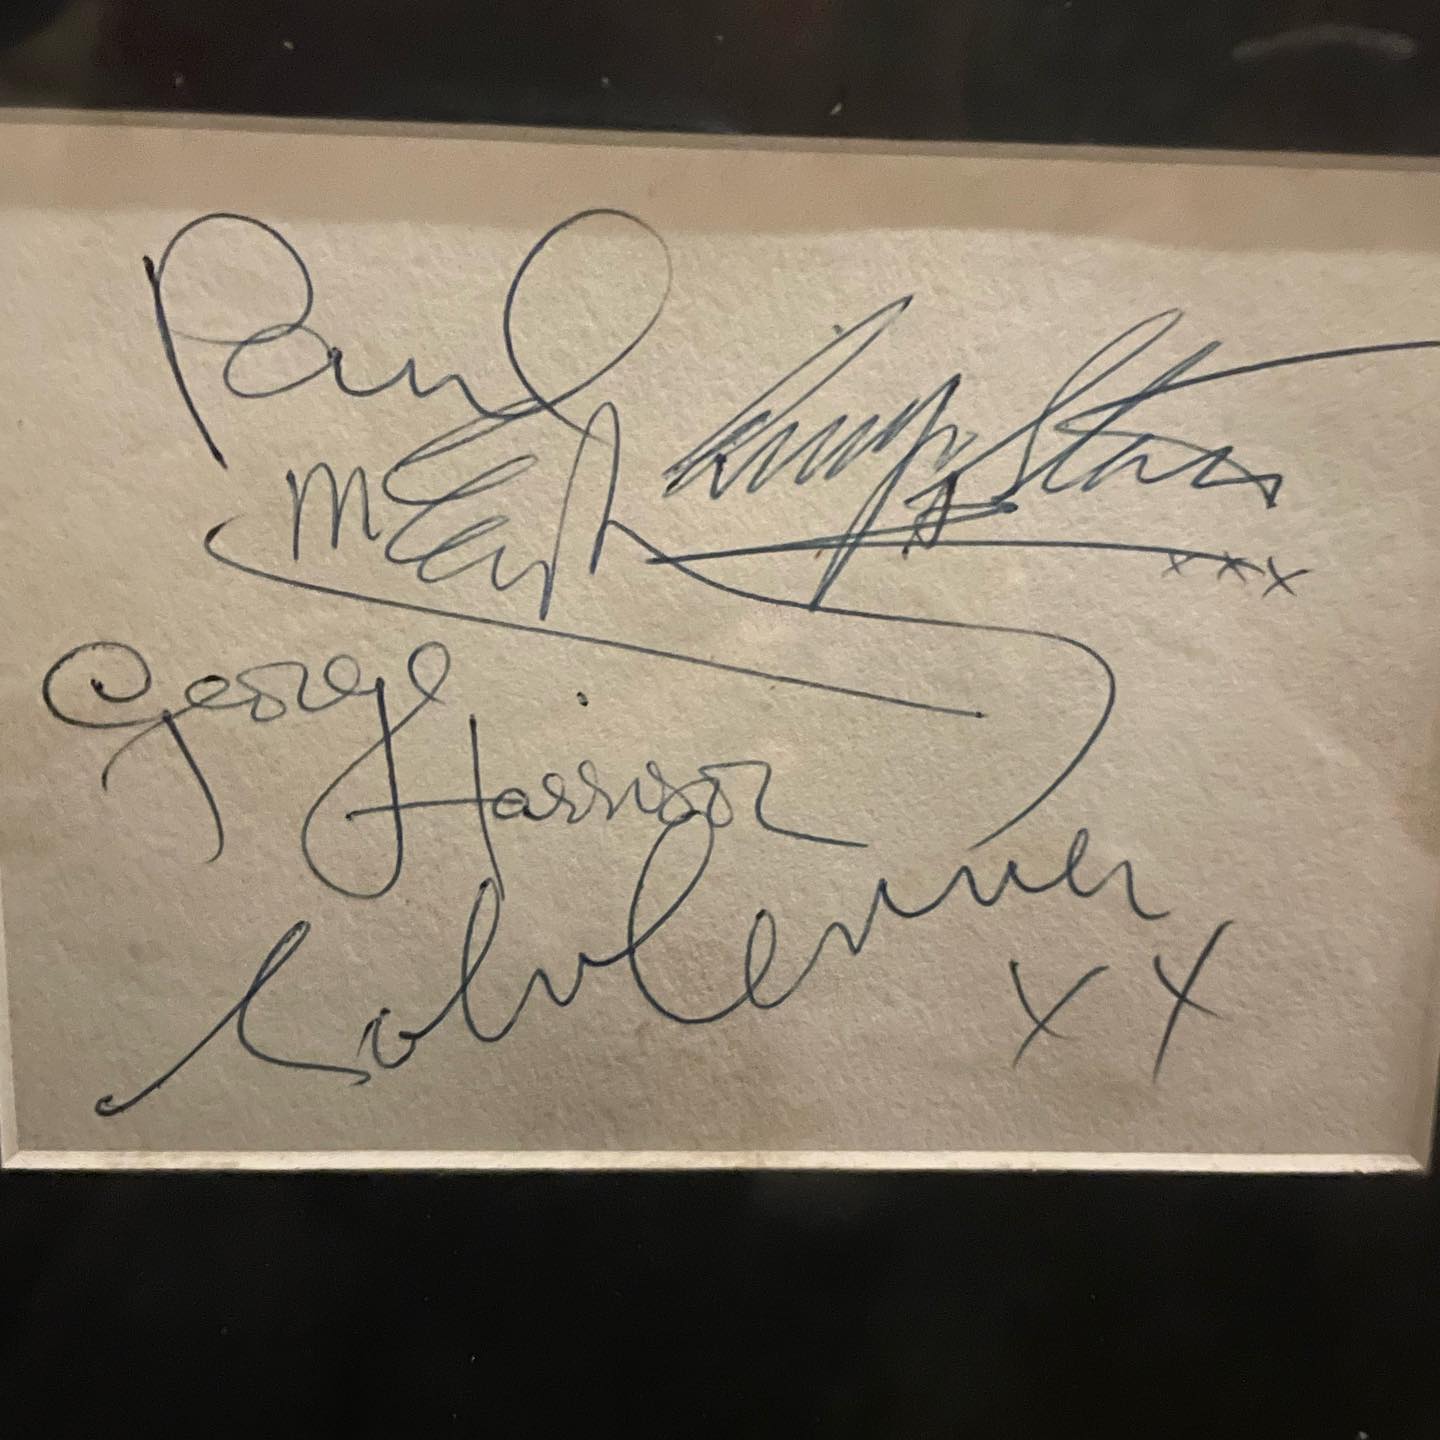 Paul
McCartney
Ringo Starr
xxx
George
Harrison
John Lennon
xx